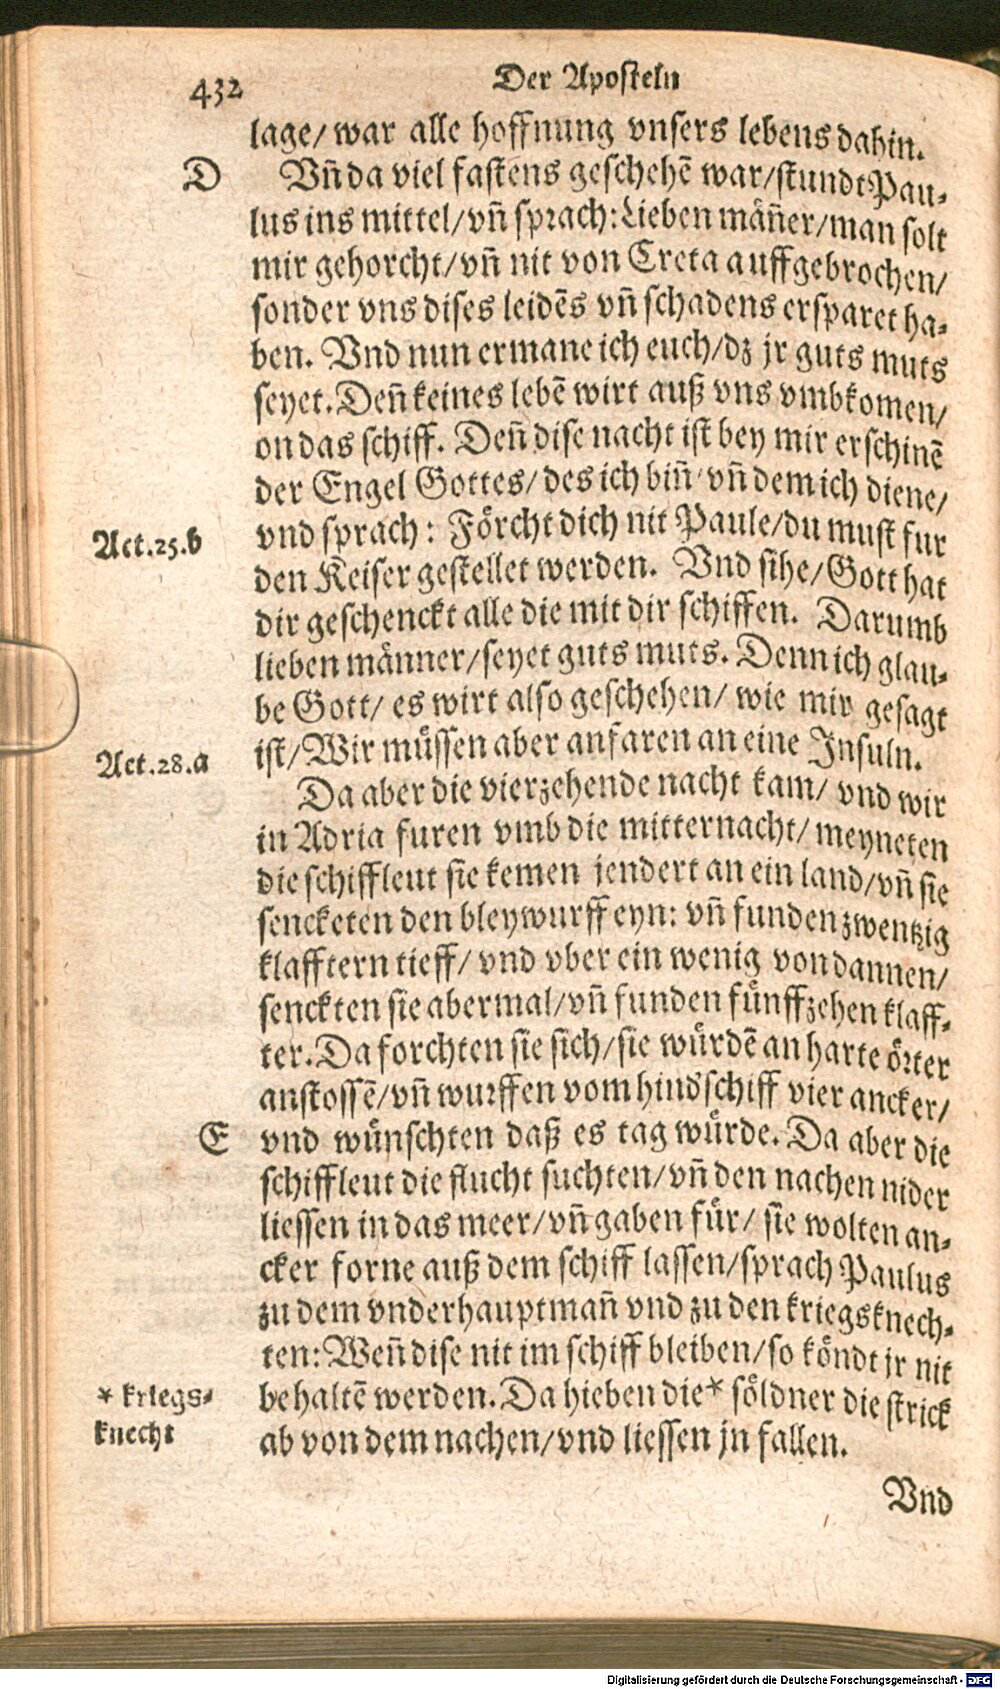 432
Der Aposteln
lage/ war alle hoffnung vnsers lebens dahin.
D
Vn̄ da viel fastens geschehē war/ stundt Pau-
lus ins mittel/ vn̄ sprach: Lieben män̄er/ man solt
mir gehorcht/ vn̄ nit von Creta auffgebrochen/
sonder vns dises leidēs vn̄ schadens ersparet ha-
ben. Vnd nun ermane ich euch/ dz jr guts muts
seyet. Den̄ keines lebē wirt auß vns vmbkomen/
on das schiff. Den̄ dise nacht ist bey mir erschinē
der Engel Gottes/ des ich bin̄/ vn̄ dem ich diene/
Act.25.b
vnd sprach: Förcht dich nit Paule/ du must fur
den Keiser gestellet werden. Vnd sihe/ Gott hat
dir geschenckt alle die mit dir schiffen. Darumb
lieben männer/ seyet guts muts. Denn ich glau-
be Gott/ es wirt also geschehen/ wie mir gesagt
Act.28.a
ist/ Wir müssen aber anfaren an eine Insuln.
Da aber die vierzehende nacht kam/ vnd wir
in Adria furen vmb die mitternacht/ meyneten
die schiffleut sie kemen jendert an ein land/ vn̄ sie
senncketen den bleywurff eyn: vn̄ funden zwentzig
klafftern tieff/ vnd vber ein wenig von dannen/
senckten sie abermal/ vn̄ funden fünffzehen klaff-
ter. Da forchten sie sich/ sie würdē an harte örter
anstossē/ vn̄ wurffen vom hindschiff vier ancker/
E
vnd wünschten daß es tag würde. Da aber die
schiffleut die flucht suchten/ vn̄ den nachen nider
liessen in das meer/ vn̄ gaben für/ sie wolten an-
cker forne auß dem schiff lassen/ sprach Paulus
zu dem vnderhauptman̄ vnd zu den kriegsknech-
ten: Wen̄ dise nit im schiff bleiben/ so köndt jr nit
* kriegs-
knecht
behaltē werden. Da hieben die* söldner die strick
ab von dem nachen/ vnd liessen jn fallen.
Vnd
Digitalisierung gefördert durch die Deutsche Forschungsgemeinschaft - DFG